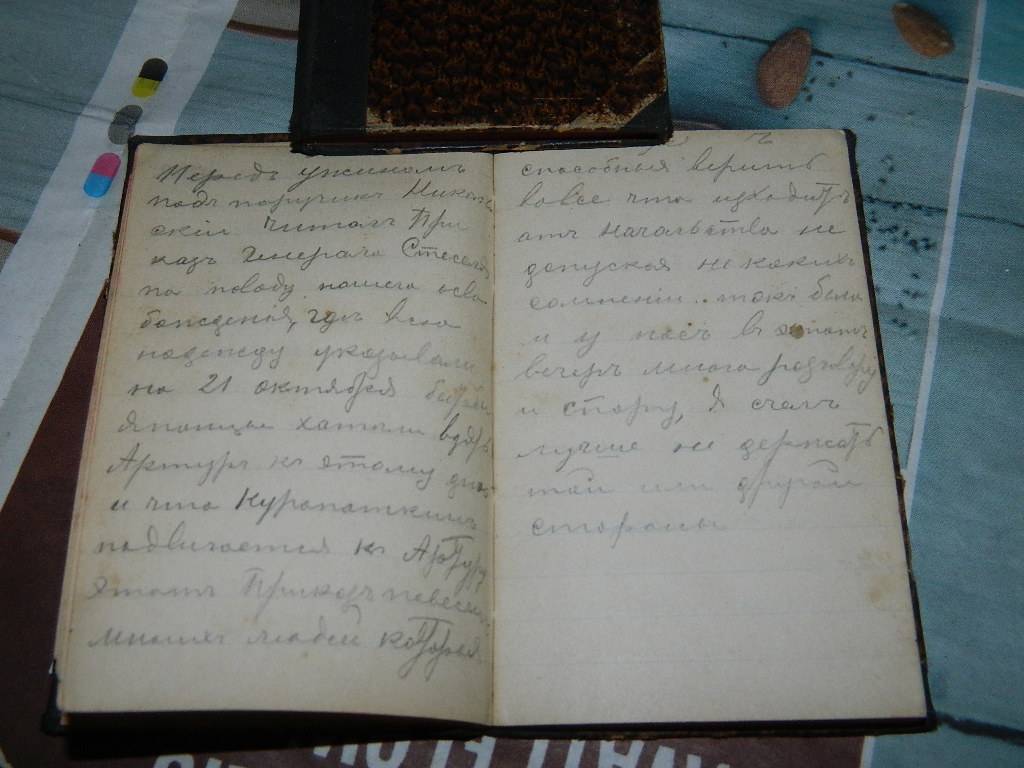 Передъ ужиномъ
подъ поручикъ Никол
скій читалъ При
казъ Генерала Стесел
по поводу нашего осво
божденія, гдѣ всю
надежду указывали
на 21 октября будто
Японцы хотели взять
Артуръ къ этому дню
и что Куропаткинъ
подвигается къ Артуру
Этотъ Приказъ повесели
многихъ людей которыя
способныя верить
во все что изходитъ
отъ начальства не
допуская ни какихъ
сомненіи.. такъ было
и у насъ въ этотъ
вечеръ много разговору
и спору, Я счелъ
лучше не держать
той или другой
стороны